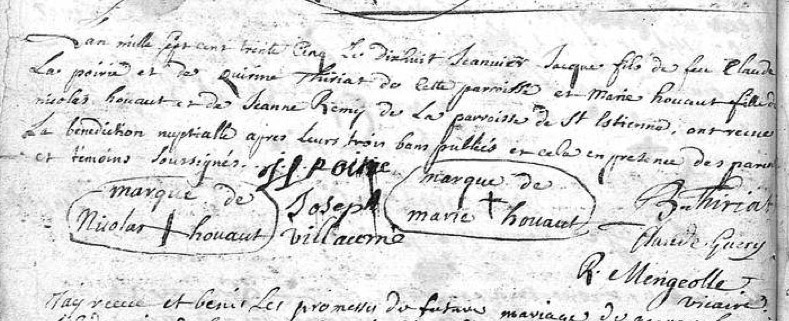 Lan mille sept cent trente Cinq Le dixhuit Jeanvier Jacque fils de feu Claude
La poirie et de quirine Thiriat de Cette paroisse et Marie houaut fille de
nicolas houaut et de Jeanne Remy de La parroisse de St Estienne, ont recue
La benediction nuptialle apres Leurs trois bans publiés et cela en presence des paren
et temoins soussignés. J. poirie
marque de
Nicolas houaut
Joseph
villacemé
marque de
marie houaut
B. Thiriat
Claude Guery
R. Mengeolle
vicaire
Jay recue et benis Les promesses de future mariage de